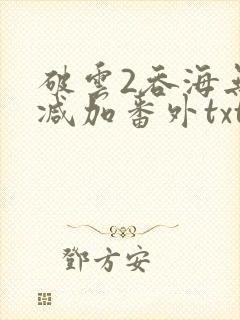 破雲2吞海無
减加番外txt
鄧方安